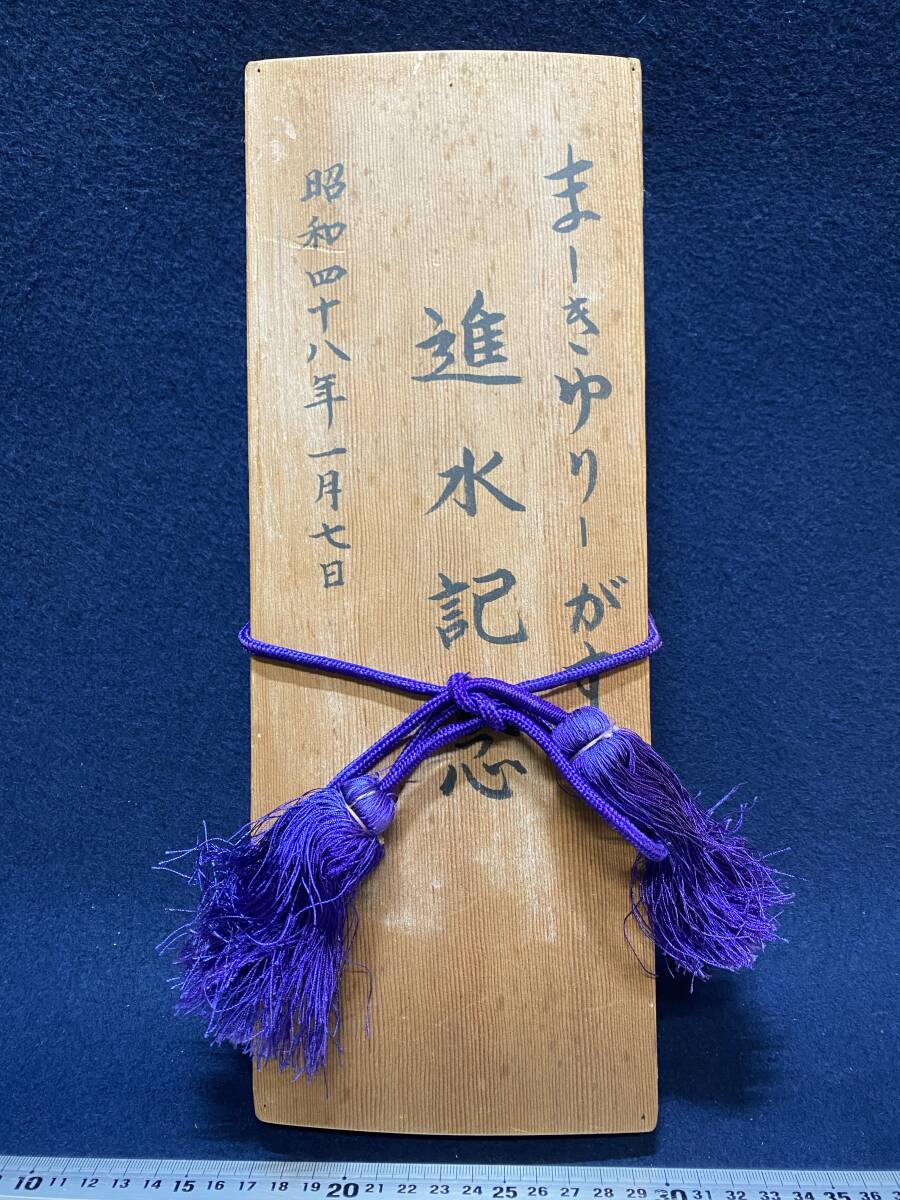 まーきゆりーがす
進水記念
昭和四十八年一月七日
10 11 12 13 14 15 16 17 18 19 20 21 22 23 24 25 26 27 28 29 30 31 32 33 34 35 36